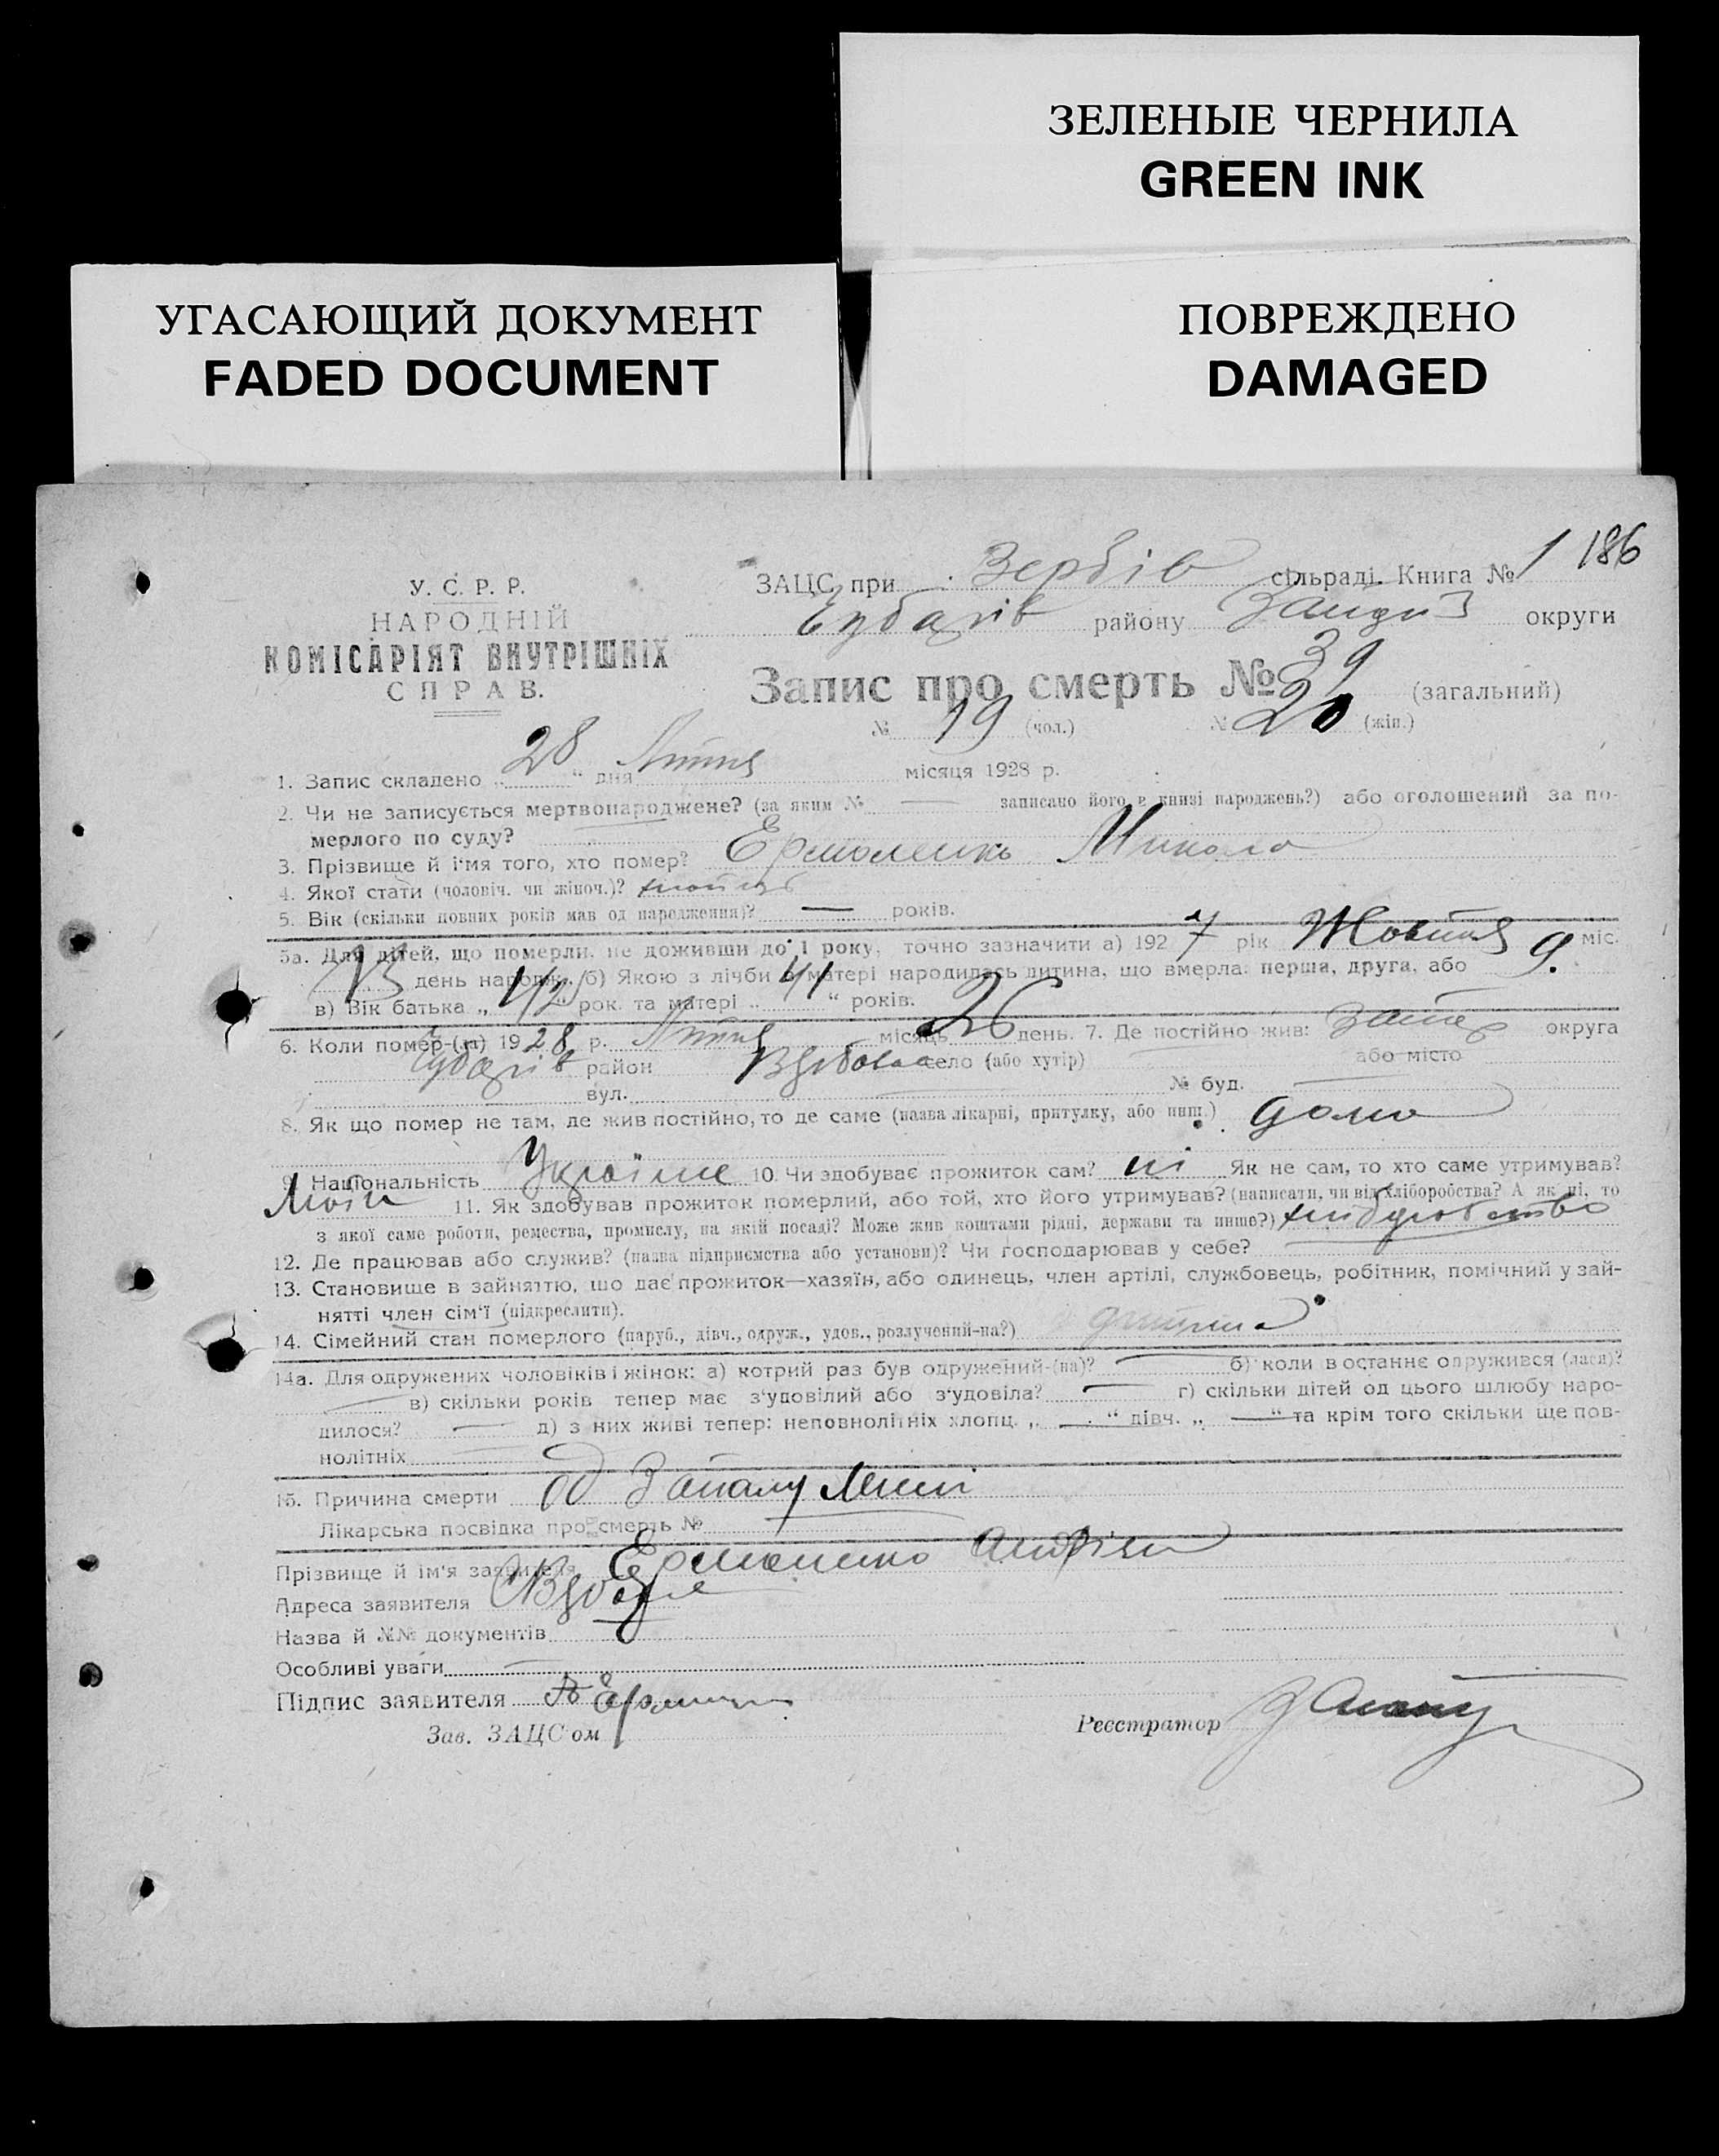 ЗЕЛЕНЫЕ ЧЕРНИЛА
GREEN INK
УГАСАЮЩИЙ ДОКУМЕНТ
FADED DOCUMENT
ПОВРЕЖДЕНО
DAMAGED
1 186
У. С. Р. Р.
НАРОДНІЙ
КОМІСАРІЯТ ВНУТРІШНІХ
СПРАВ.
ЗАЦС при Вербів сільраді. Книга №
району округи
Запис про смерть № 39 (загальний)
№ 19 (чол.) № 20 (жін.)
1. Запис складено „ 28 “ дня Липня місяця 1928 р.
2. Чи не записується мертвонароджене? (за яким № — записано його в книзі народжень?) або оголошений за по-
мерлого по суду?
3. Прізвище й ім'я того, хто помер? Ермоленко Микола
4. Якої стати (чоловіч. чи жіноч.)?
5. Вік (скільки повних років мав од народження)? — років.
5а. Для дітей, що померли, не доживши до 1 року, точно зазначити а) 192 7 рік Жовтня міс.
день народж. б) Якою з лічби у матері народилась дитина, що вмерла: перша, друга, або 9.
в) Вік батька „ 42 “ рок. та матері „ 41 “ років.
6. Коли помер-(ла) 1928 р. Липня місяць 26 день. 7. Де постійно жив: округа
район село (або хутір) або місто
вул. № буд.
8. Як що помер не там, де жив постійно, то де саме (назва лікарні, притулку, або инш.) дома
9. Національність Україне 10. Чи здобуває прожиток сам? ні Як не сам, то хто саме утримував?
11. Як здобував прожиток померлий, або той, хто його утримував? (написати, чи від хліборобства? А як ні, то
з якої саме роботи, ремества, промислу, на якій посаді? Може жив коштами рідні, держави та инше?) хліборобство
12. Де працював або служив? (назва підприємства або установи)? Чи господарював у себе?
13. Становище в зайняттю, що дає прожиток—хазяїн, або одинець, член артілі, службовець, робітник, помічний у зай-
нятті член сім'ї (підкреслити).
14. Сімейний стан померлого (паруб., дівч., одруж., удов., розлучений-на?) дитина
14а. Для одружених чоловіків і жінок: а) котрий раз був одружений-(на)? — б) коли в останнє одружився (лася)?
— в) скільки років тепер має з'удовілий або з'удовіла? — г) скільки дітей од цього шлюбу наро-
дилося? — д) з них живі тепер: неповнолітніх хлопц. „ — “ дівч. „ — “ та крім того скільки ще пов-
нолітніх
15. Причина смерти од Запалу
Лікарська посвідка про смерть №
Прізвище й ім'я заявителя Ермоленко Андрій
Адреса заявителя
Назва й №№ документів
Особливі уваги
Підпис заявителя
Зав. ЗАЦС'ом
Реєстратор